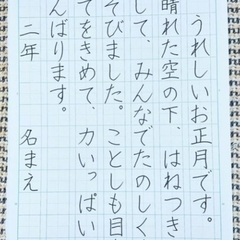 うれしいお正月です。
晴れた空の下、はねつき
して、みんなでたのしく
そびました。ことしも目
てをきめて、力いっぱい
んばります。
二年 名まえ